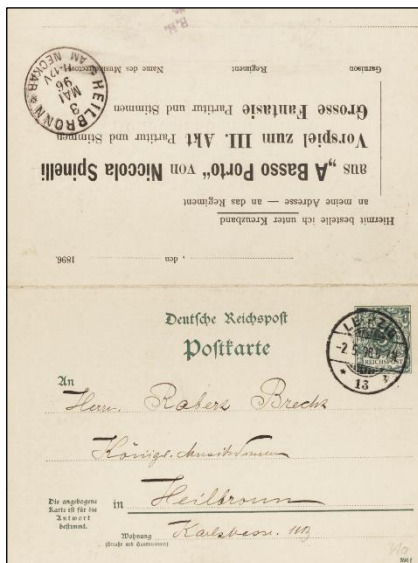 Hiermit bestelle ich unter Kreuzband
an meine Adresse — an das Regiment
aus „A Basso Porto“ von Niccola Spinelli
Vorspiel zum III. Akt Partitur und Stimmen
Grosse Fantasie Partitur und Stimmen
Garnison Regiment Name des Musikdirectors
, den 1896.
HEILBRONN
AM NECKAR
3
MAI
96
11-12V
Deutsche Reichspost
Postkarte
LEIPZIG
13
REICHSPOST
An
Herrn Robert Brecht
Königl. Musikdirector
in Heilbronn
Die angebogene
Karte ist für die
Antwort
bestimmt.
Wohnung
(Straße und Hausnummer)
Karlstrasse